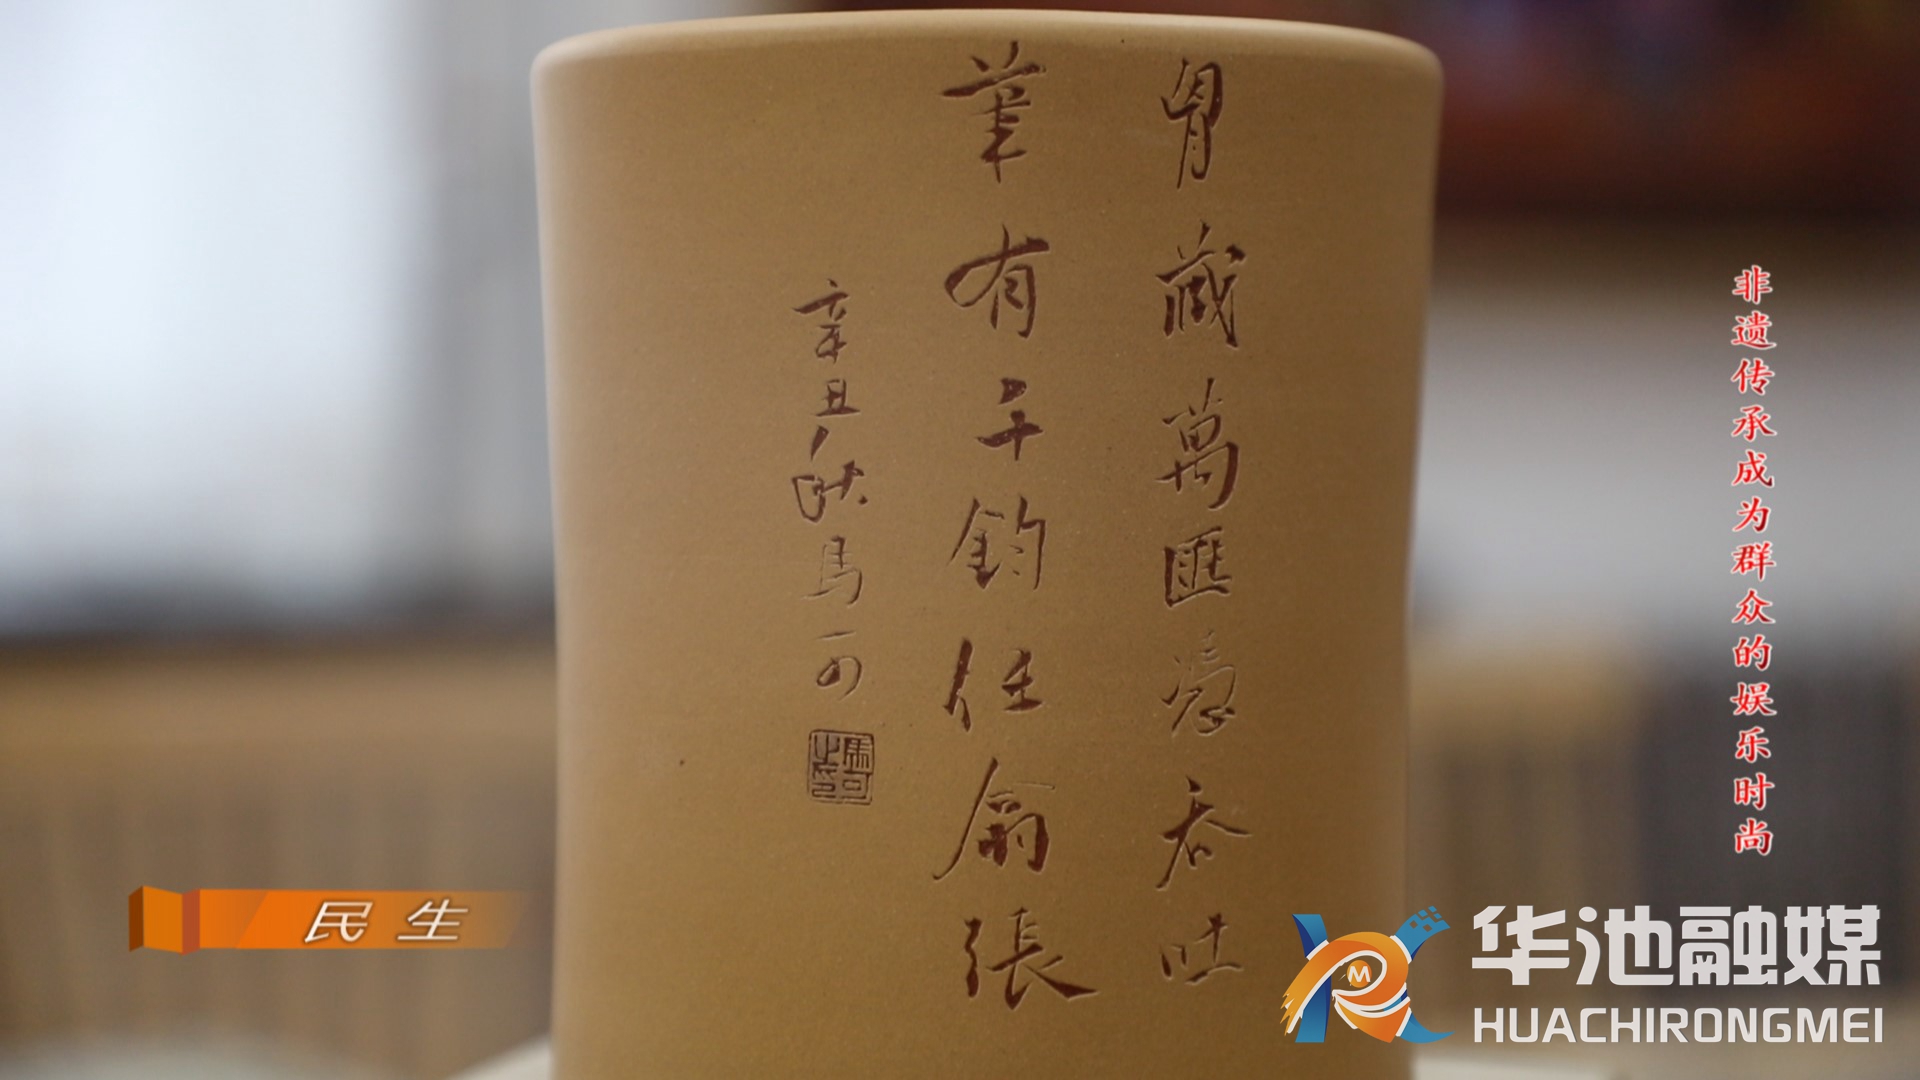 胷藏萬匯憑吞吐
筆有千鈞任翕張
辛丑秋馬一可
非遗传承成为群众的娱乐时尚
民生
华池融媒
HUACHIRONGMEI